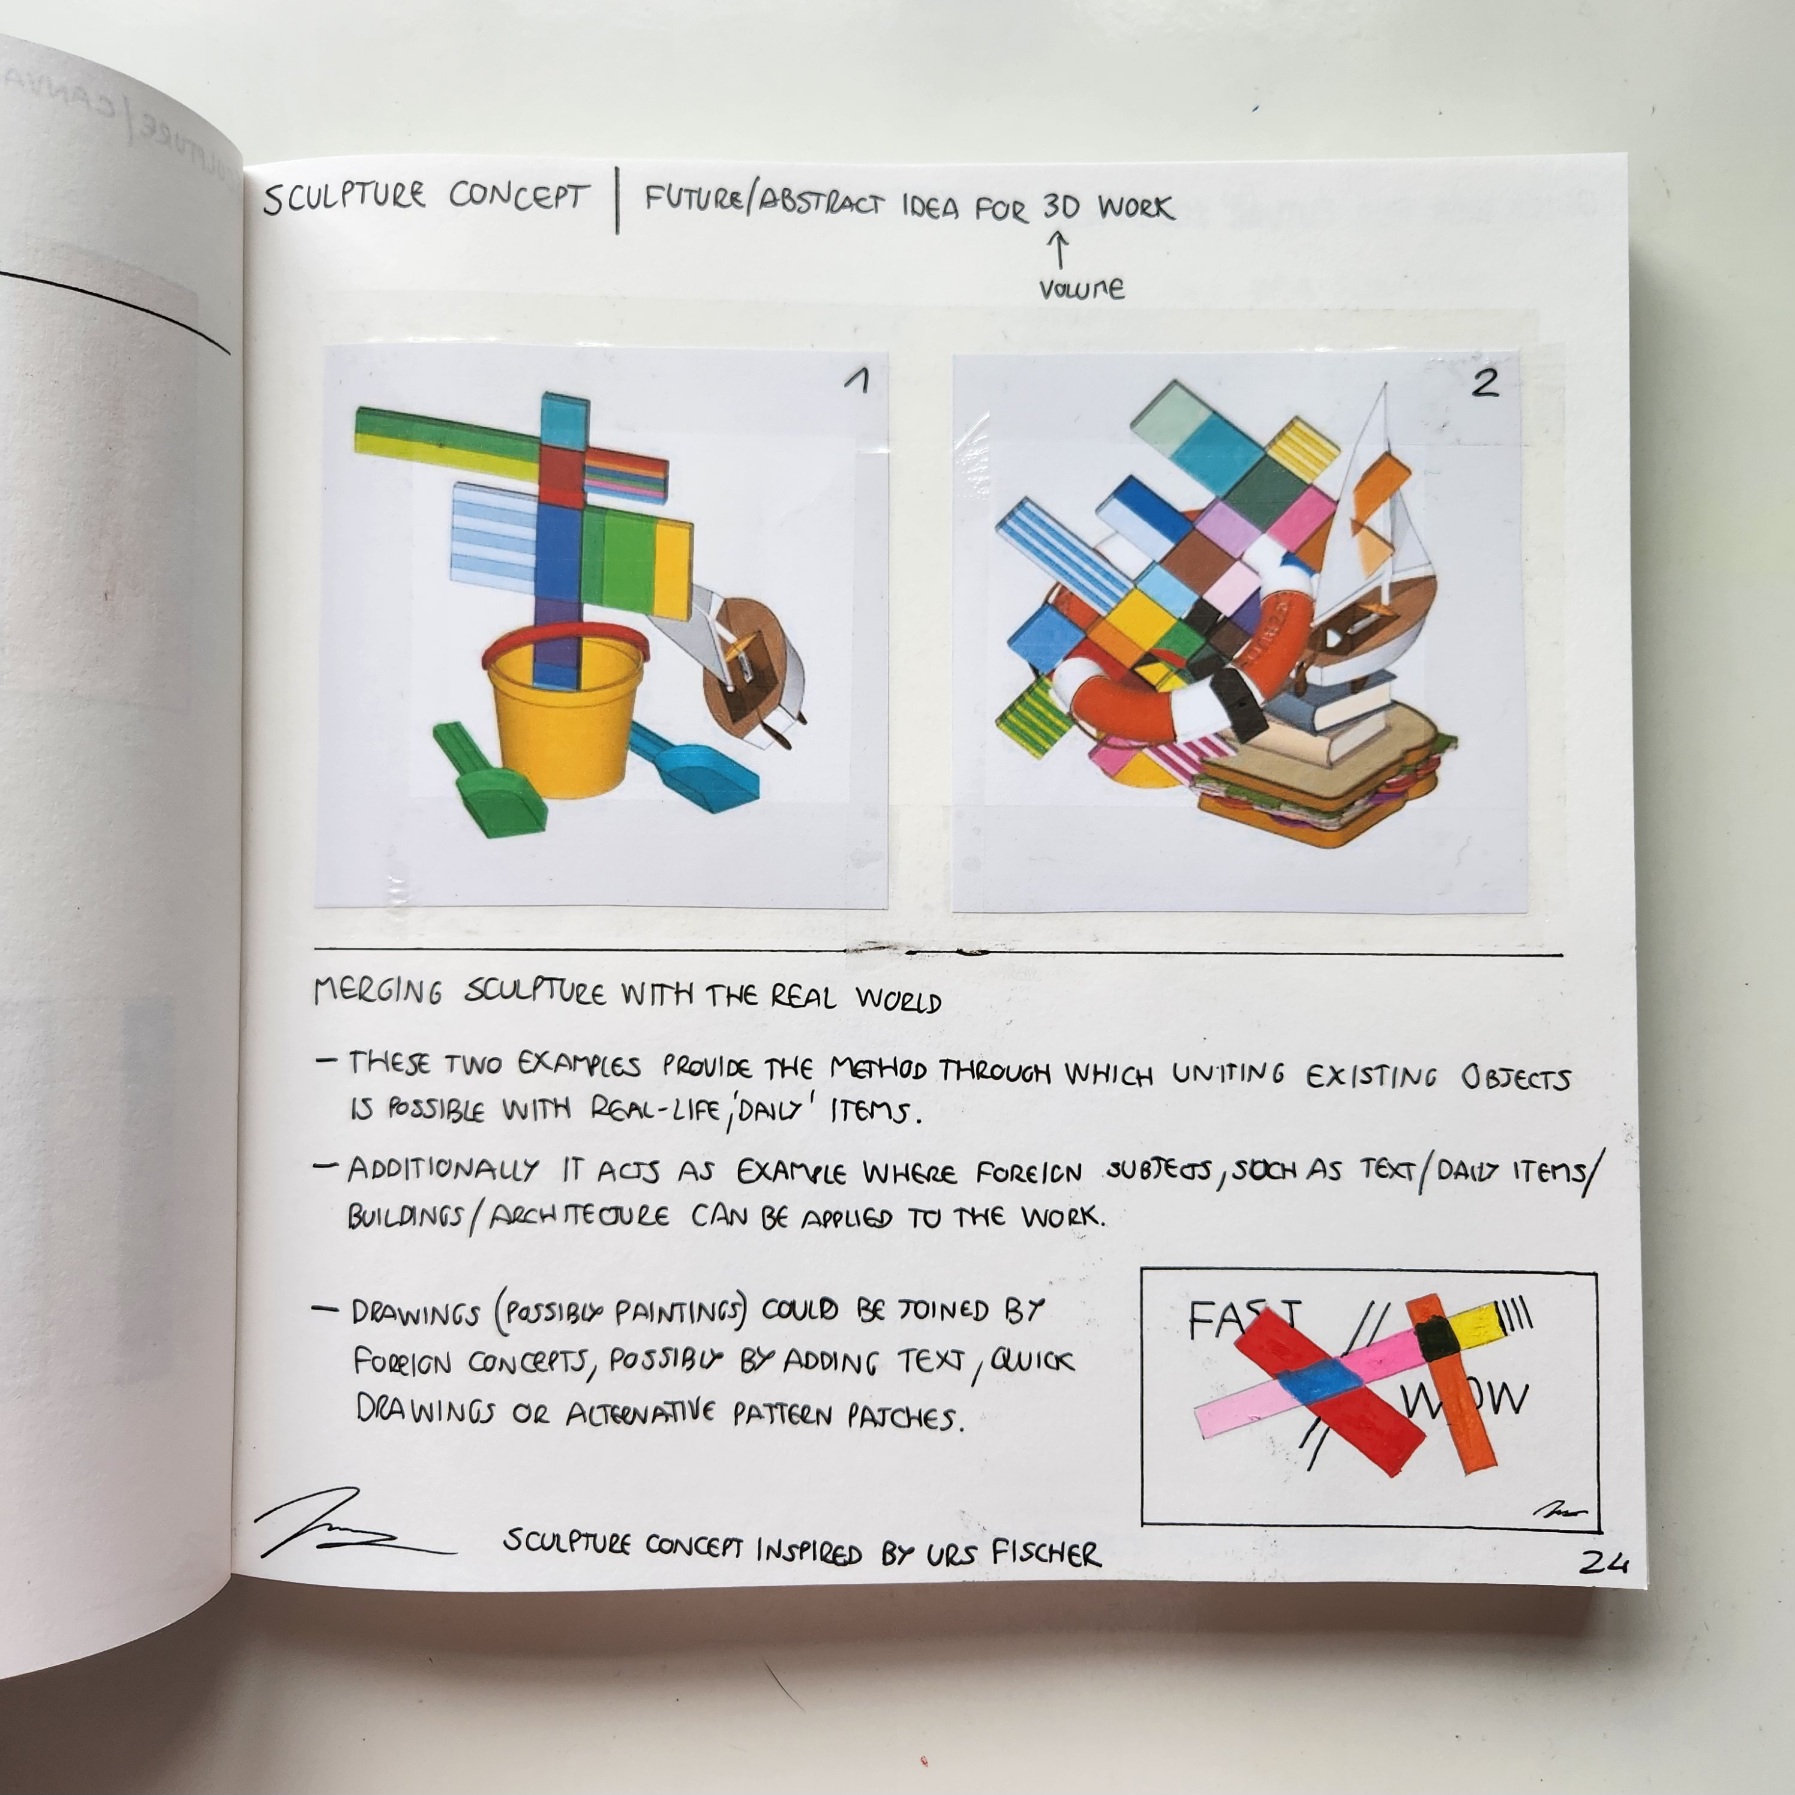 SCULPTURE CONCEPT | FUTURE/ABSTRACT IDEA FOR 3D WORK
↑
VOLUME
1
2
MERGING SCULPTURE WITH THE REAL WORLD
– THESE TWO EXAMPLES PROVIDE THE METHOD THROUGH WHICH UNITING EXISTING OBJECTS
IS POSSIBLE WITH REAL-LIFE, 'DAILY' ITEMS.
– ADDITIONALLY IT ACTS AS EXAMPLE WHERE FOREIGN SUBJECTS, SUCH AS TEXT/DAILY ITEMS/
BUILDINGS/ARCHITECTURE CAN BE APPLIED TO THE WORK.
– DRAWINGS (POSSIBLY PAINTINGS) COULD BE JOINED BY
FOREIGN CONCEPTS, POSSIBLY BY ADDING TEXT, QUICK
DRAWINGS OR ALTERNATIVE PATTERN PATCHES.
FAST //
WOW
SCULPTURE CONCEPT INSPIRED BY URS FISCHER
24